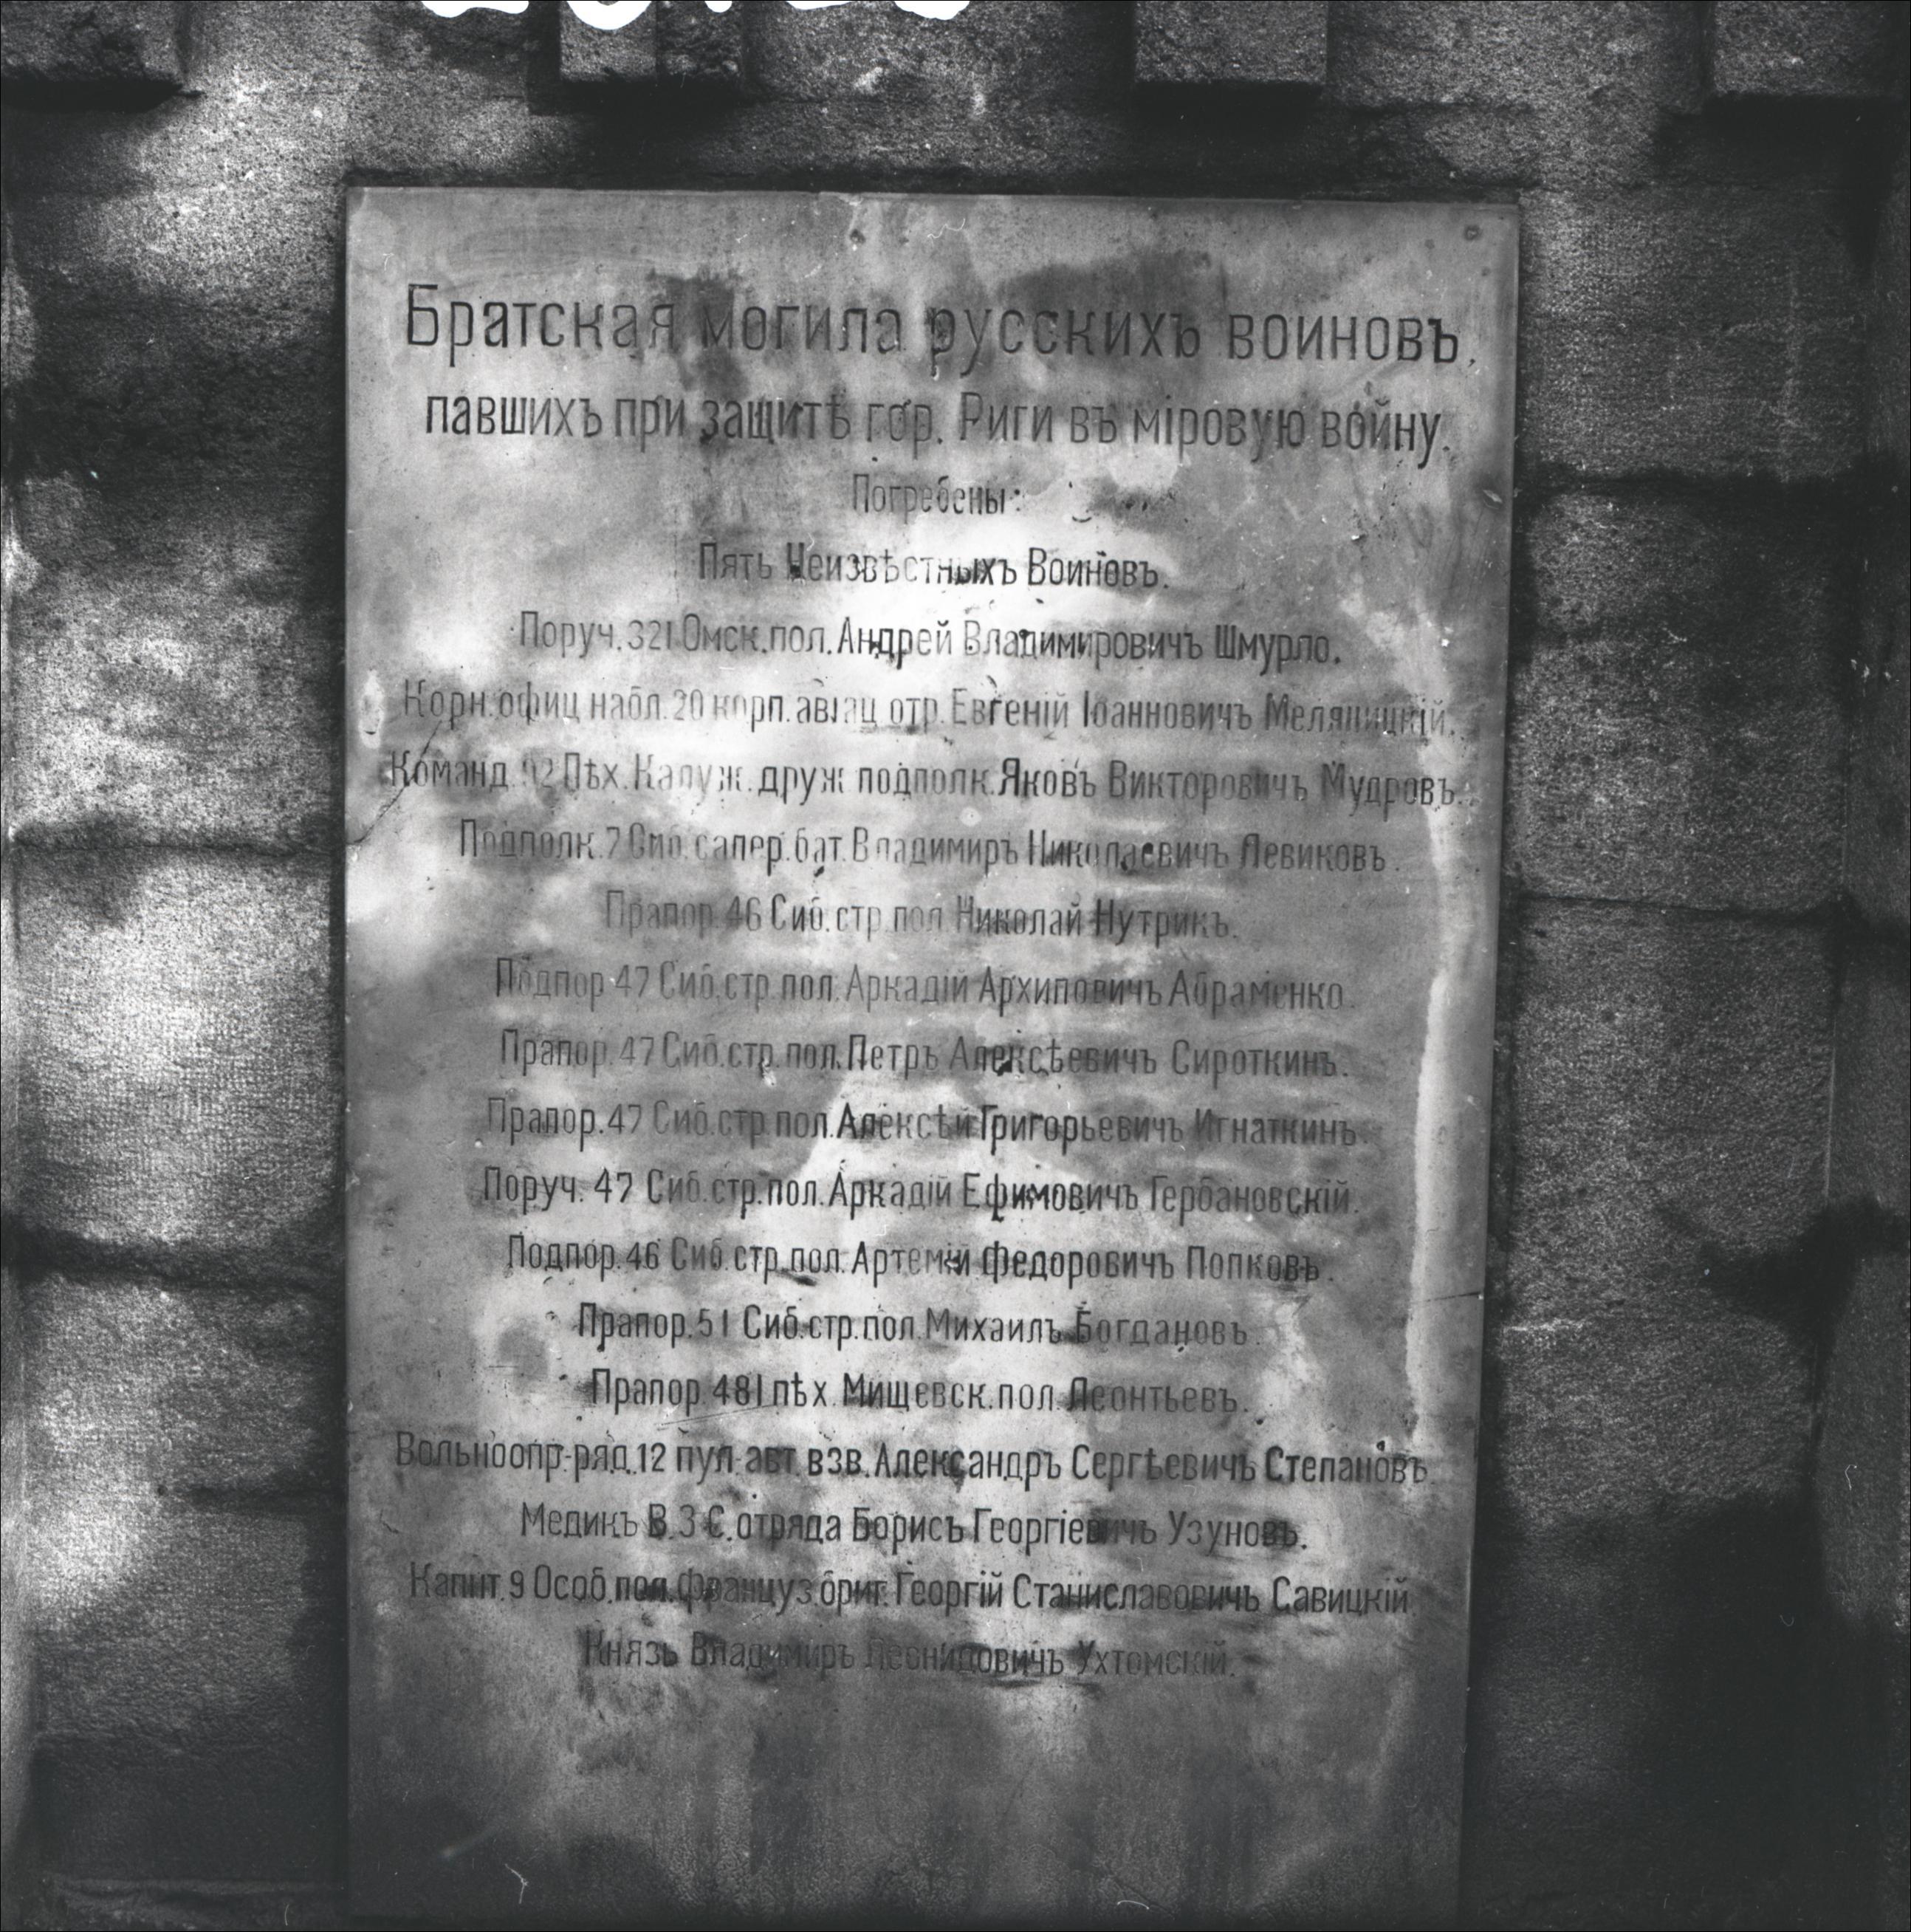 Братская могила русскихъ воиновъ,
павшихъ при защитѣ гор. Риги въ міровую войну.
Погребены:
Пять Неизвѣстныхъ Воиновъ.
Поруч. 321 Омск. пол. Андрей Владимировичъ Шмурло.
Корн. офиц набл. 20 корп. авіац отр. Евгеній Іоанновичъ Меляницкій.
Команд. Пѣх. Калуж. друж подполк. Яковъ Викторовичъ Мудровъ.
Подполк. 7 Сиб. сапер. бат. Владимиръ Николаевичъ Левиковъ.
Прапор. 46 Сиб. стр. пол Николай Нутрикъ.
Подпор. 47 Сиб. стр. пол. Аркадій Архиповичъ Абраменко.
Прапор. 47 Сиб. стр. пол. Петръ Алексѣевичъ Сироткинъ.
Прапор. 47 Сиб. стр. пол. Алексѣй Григорьевичъ Игнаткинъ.
Поруч. 47 Сиб. стр. пол. Аркадій Ефимовичъ Гербановскій.
Подпор. 46 Сиб. стр. пол. Артемій Федоровичъ Попковъ.
Прапор. 51 Сиб. стр. пол. Михаилъ Богдановъ.
Прапор. 481 пѣх. Мищевск. пол. Леонтьевъ.
Вольноопр-ряд. 12 пул-авт. взв. Александръ Сергѣевичъ Степановъ
Медикъ В. З С. отряда Борисъ Георгіевичъ Узуновъ.
Капит. 9 Особ. пол. Француз. бриг. Георгій Станиславовичъ Савицкій.
Князь Владимиръ Леонидовичъ Ухтомскій.